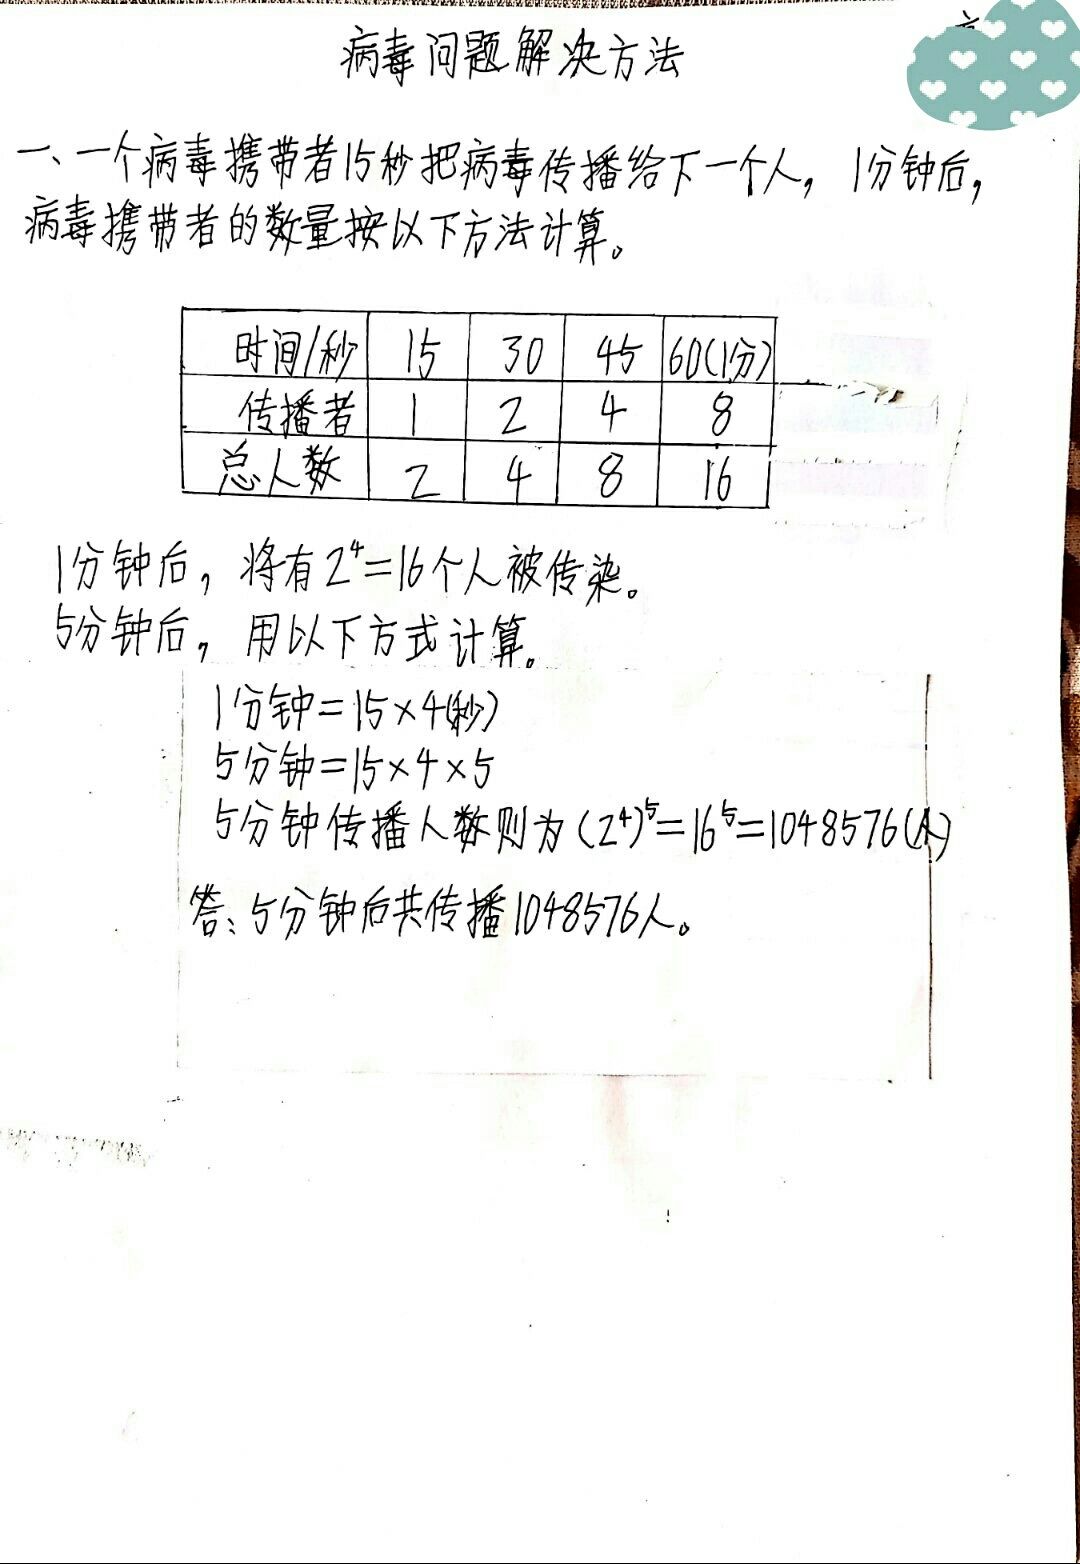 病毒问题解决方法
一、一个病毒携带者15秒把病毒传播给下一个人，1分钟后，
病毒携带者的数量按以下方法计算。
时间/秒 15 30 45 60(1分)
传播者 1 2 4 8
总人数 2 4 8 16
1分钟后，将有2⁴=16个人被传染。
5分钟后，用以下方式计算。
1分钟=15×4(秒)
5分钟=15×4×5
5分钟传播人数则为(2⁴)⁵=16⁵=1048576(人)
答：5分钟后共传播1048576人。